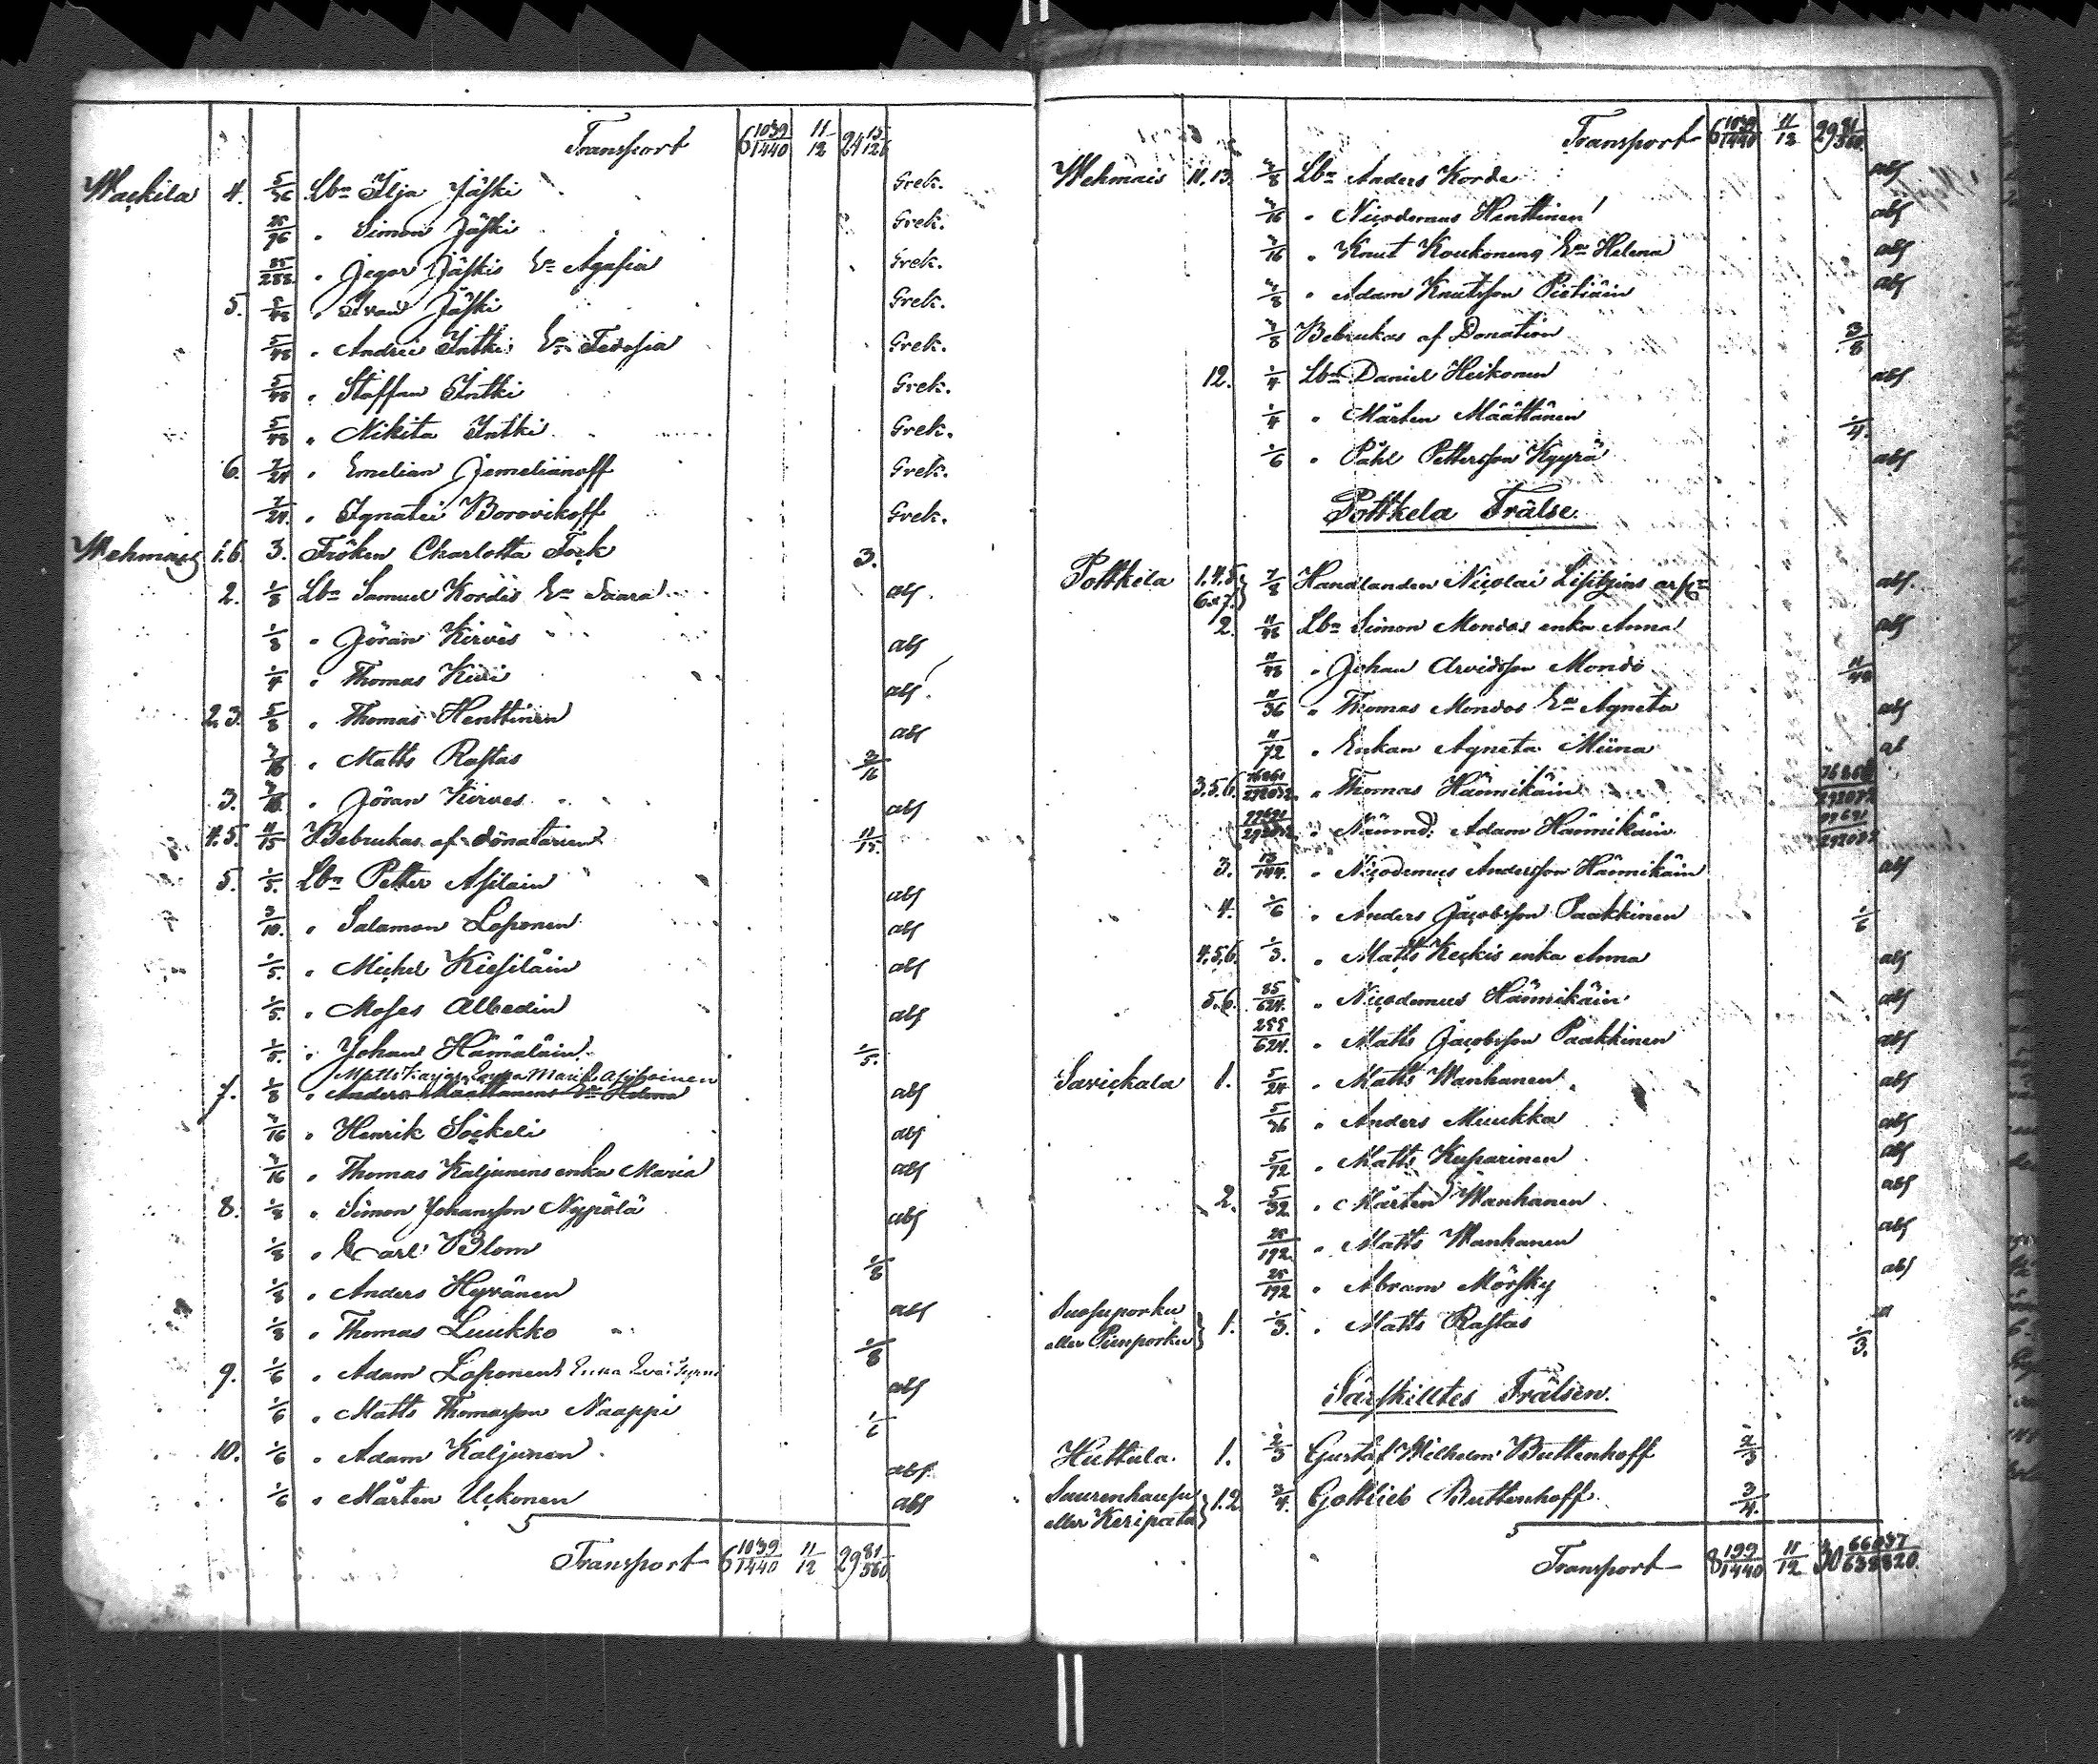 Transport 6 1039/1440 11/12 24 15/126
Wackila 4. 5/36 Lbn Ilja Jäski Grek.
25/96 " Simon Jäski Grek.
25/288 " Jegor Jäskis En Agafia Grek.
5. 5/48 " Ivan Jäski Grek.
5/48 " Andrei Intki En Fedosia Grek.
5/48 " Staffan Intki Grek.
5/48 " Nikita Intki Grek.
6. 7/24 " Emelian Jemelianoff Grek.
7/24 " Ignatei Borovikoff Grek.
Wehmais 1.6 3. Fröken Charlotta Fock 3.
2. 1/8 Lbn Samuel Kordes En Saara abs
1/8 " Jöran Kirves abs
1/4 " Thomas Kivi abs
2.3. 5/8 " Thomas Henttinen abs
3/16 " Matts Rastas 3/16
3. 3/16 " Jöran Kirves abs
4.5. 11/15 Bebrukas af donatarien 11/15
5. 1/5 Lbn Petter Asilain abs
3/10 " Salamon Loponen abs
1/5 " Michel Kiesiläin abs
1/5 " Moses Albedin abs
1/5 " Johan Hämäläin 1/5
Matts Karjas Enka Maria Asikainen
7. 1/8 " Anders Määttänens En Helena abs
3/16 " Henrik Söckeli abs
3/16 " Thomas Kaljunens enka Maria abs
8. 1/8 " Simon Johansson Nypölä abs
1/8 " Carl Blom 1/8
1/8 " Anders Hyvänen abs
1/8 " Thomas Luukko 1/8
9. 1/6 " Adam Loponens Enka Eva abs
1/6 " Matts Thomasson Naappi 1/6
10. 1/6 " Adam Kaljunen abs
1/6 " Mårten Uckonen abs
Transport 6 1039/1440 11/12 29 81/560
Transport 6 1039/1440 11/12 29 81/560
Wehmais 11.13. 3/8 Lbn Anders Korde abs
3/16 " Nicodemus Henttinen abs
3/16 " Knut Koukonens En Helena abs
3/8 " Adam Knutsson Pietiäin abs
3/8 Bebrukas af Donation 3/8
12. 1/4 Lbn Daniel Heikonen abs
1/4 " Mårten Määttänen 1/4.
1/6 " Påhl Pettersson Kyyrä abs
Pottkela Frälse.
Pottkila 1.4.5 6.7.} 7/8 Handlanden Nicolai Lisitzins arfr abs
2. 11/48 Lbn Simon Mondos enka Anna abs
11/48 " Johan Arvidsson Mondo 11/48
11/36 " Thomas Mondos En Agneta abs
11/72 " Enkan Agneta Miina ab
3.5.6. " Thomas Hännikäin
" Nämnd: Adam Hännikäin
3. 13/144. " Nicodemus Andersson Hännikäin abs
4. 1/6 " Anders Jacobsson Paakkinen 1/6
4.5.6. 1/3. " Matts Keckis enka Anna abs
5.6. 85/624. " Nicodemus Hännikäin abs
255/624. " Matts Jacobsson Paakkinen abs
Savickala 1. 5/24 " Matts Wanhanen abs
5/36 " Anders Muukka abs
5/72 " Matts Kuparinen abs
2. 5/32 " Mårten Wanhanen abs
25/192 " Matts Wanhanen abs
25/192 " Abram Mörsky abs
Suosuporku
eller Piinporku} 1. 1/3. " Matts Rastas 1/3.
Särskilltes Frälsen.
Huttula. 1. 2/3 Gustaf Wilhelm Buttenhoff 2/3
Saurenhaupu
eller Keripata} 1.2 3/4. Gottlieb Buttenhoff 3/4.
Transport 8 199/1440 11/12 30